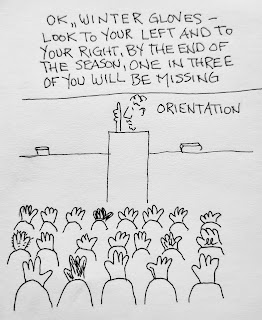 OK, WINTER GLOVES –
LOOK TO YOUR LEFT AND TO
YOUR RIGHT, BY THE END OF
THE SEASON, ONE IN THREE
OF YOU WILL BE MISSING
ORIENTATION